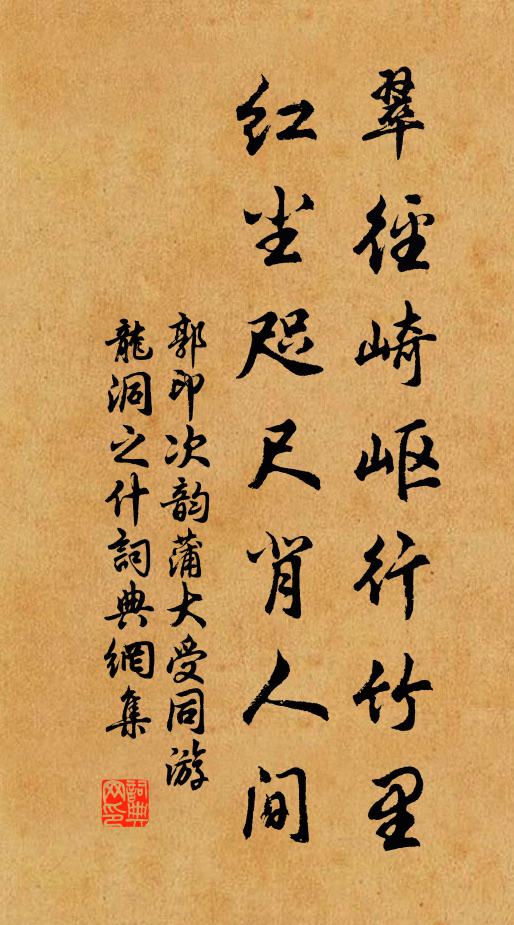 翠徑崎岖行竹里
红尘咫尺背人间
郭印次韵蒲大受同游
龍洞之什詞典網集
詞典
网印